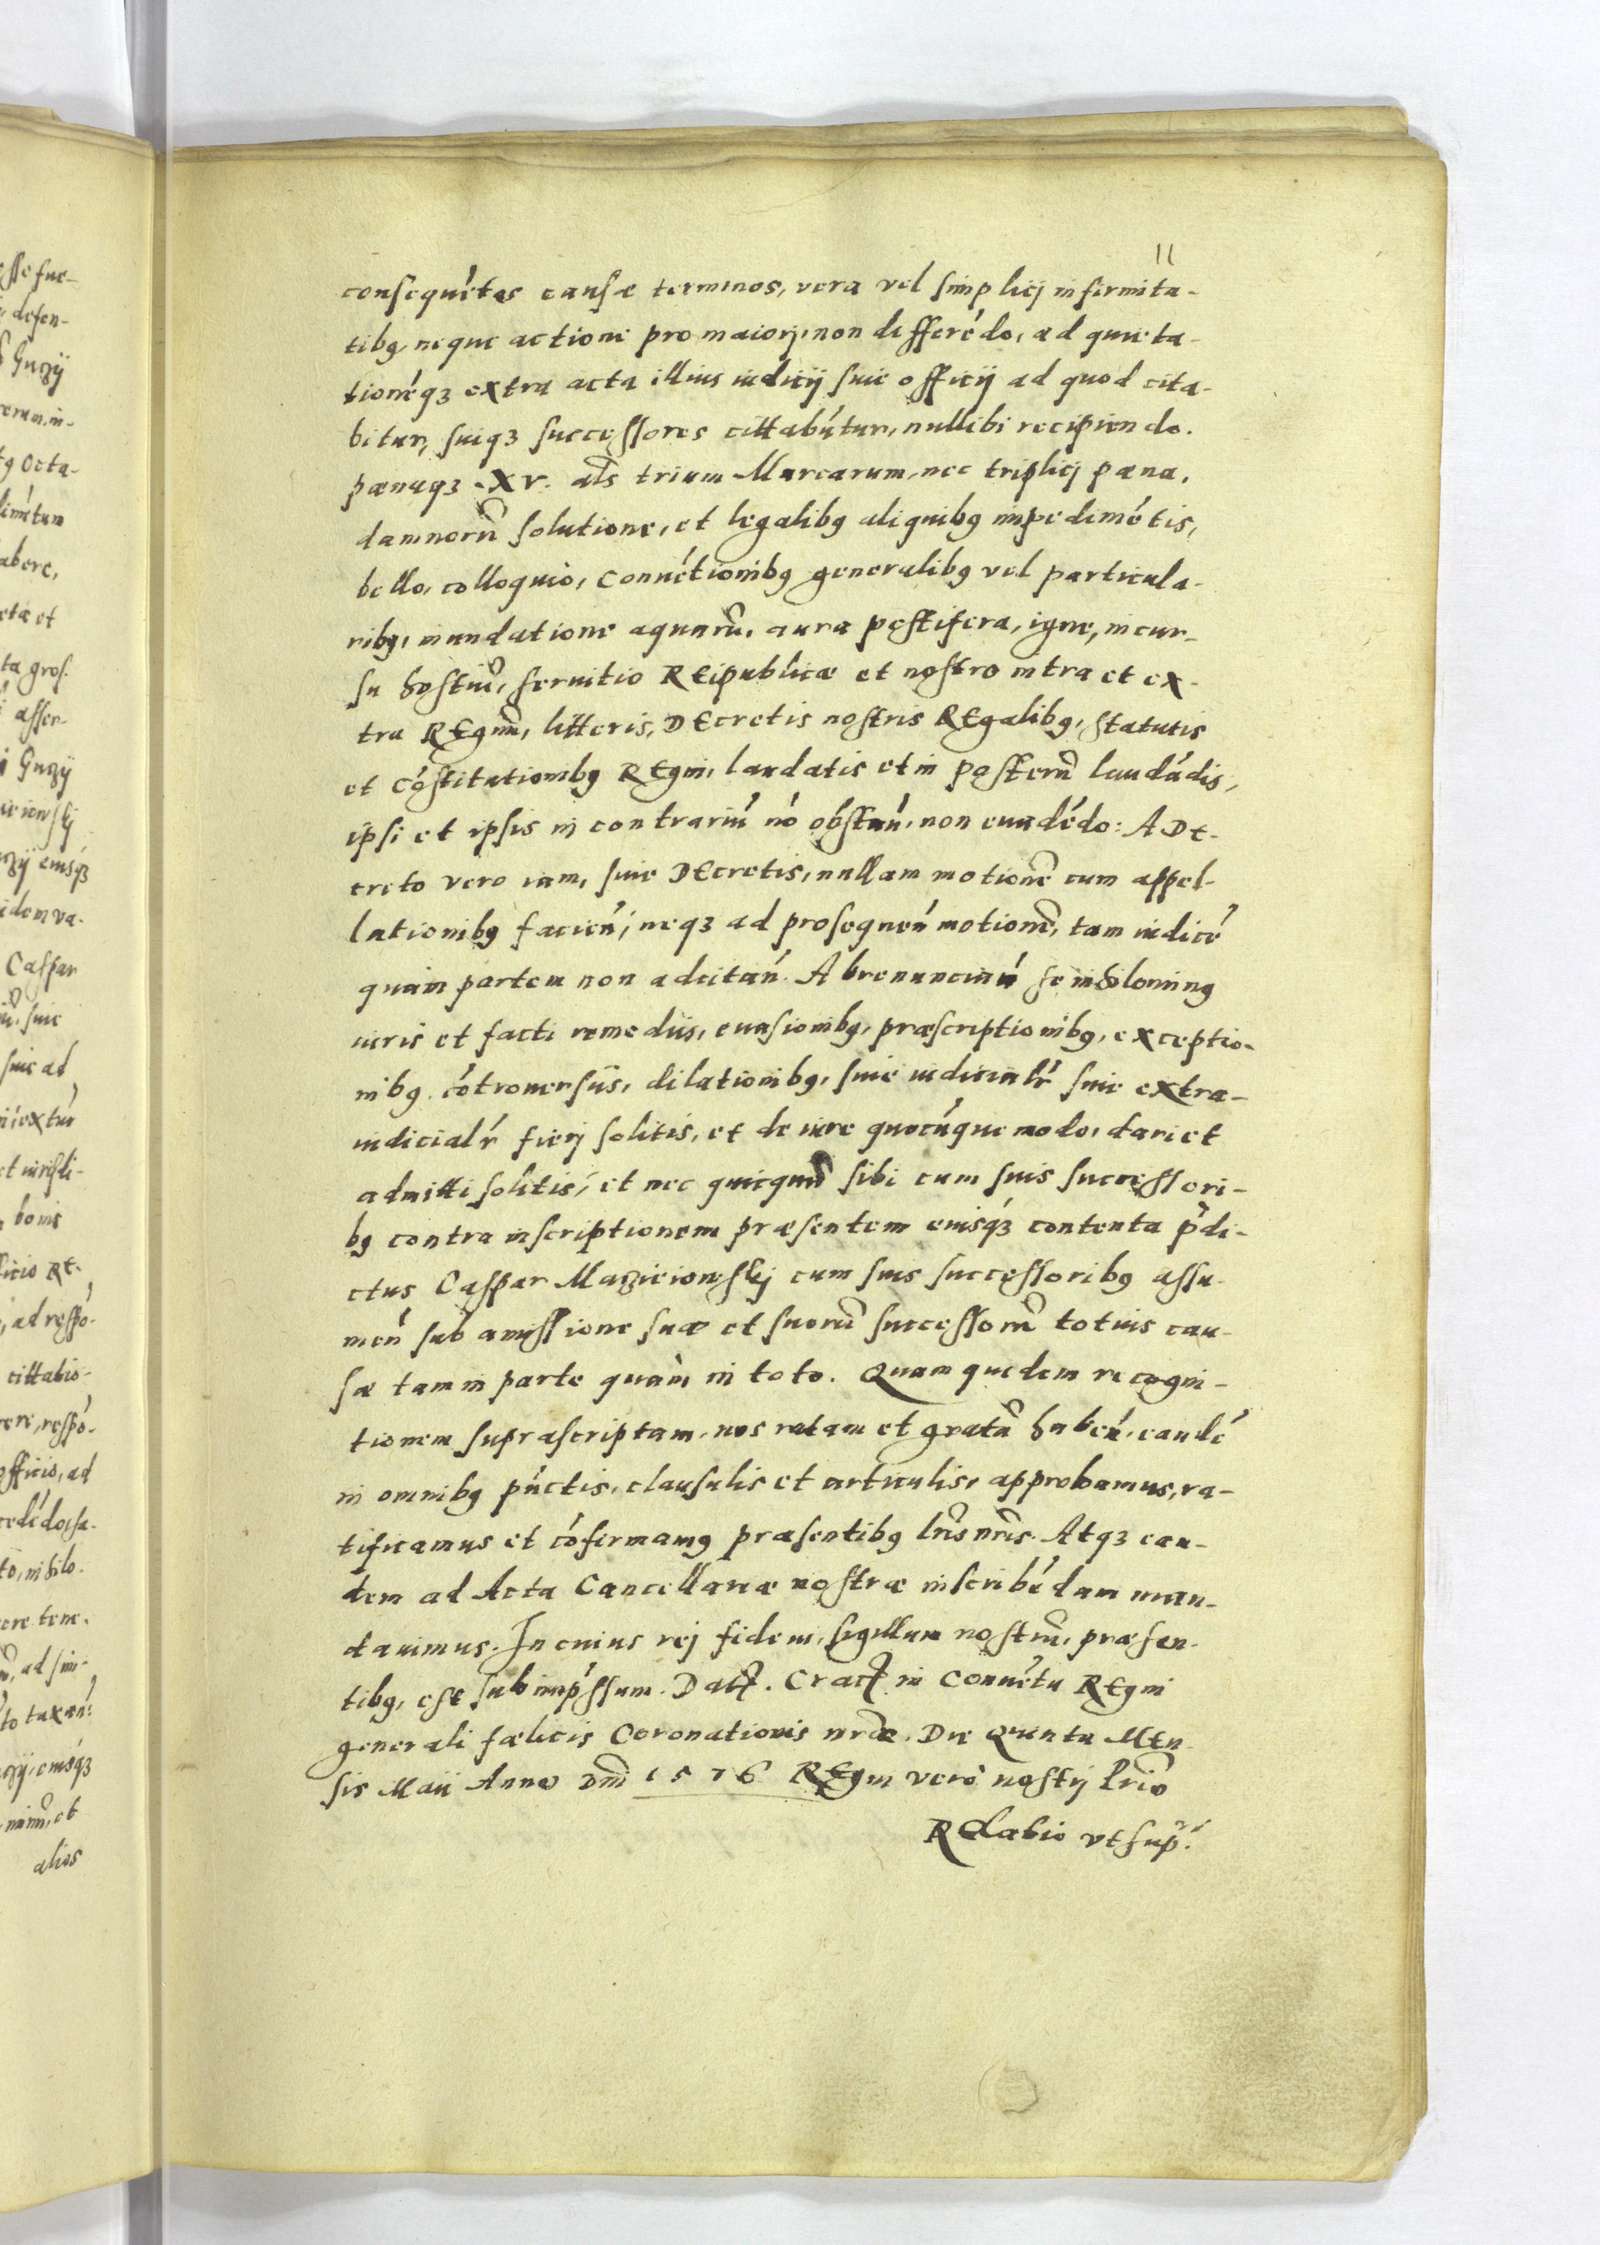 11
consequẽtes causæ terminos, vera vel simplicj infirmita-
tibꝫ neque actione pro maiorj, non differẽdo, ad quieta-
tionẽqꝫ extra acta illius iudicij siue officij ad quod cita-
bitur, suiqꝫ successores cittabũtur, nullibi recipiendo.
pænaqꝫ XV. als trium Marcarum, nec triplicj pæna,
damnorũ solutione, et legalibꝫ aliquibꝫ impedimẽtis,
bello, colloquio, Conuẽtionibꝫ generalibꝫ vel particula-
ribꝫ, inundatione aquarũ, aura pestifera, igne, incur-
su hostiũ, seruitio REipublicæ et nostro intra et ex-
tra REgnũ, litteris, DEcretis nostris REgalibꝫ, Statutis
et Cõstitutionibꝫ REgni, laudatis et in posterũ laudãdis,
ipsi et ipsis in contrariũ nõ obstañ, non euadẽdo: A DE-
creto vero iam, siue DEcretis, nullam motionẽ cum appel-
lationibꝫ facieñ, neqꝫ ad prosequeñ motionẽ, tam iudicẽ
quàm partem non adcitañ. Abrenunciañ se nihiloming
iuris et facti remediis, euasionibꝫ, præscriptionibꝫ, exceptio-
nibꝫ cõtrouersiis, dilationibꝫ, siue iudicialr siue extra-
iudicialr fierj solitis, et de iure quocũque modo, dari et
admitti solitis, et nec quicquã sibi cum suis successori-
bꝫ contra inscriptionem præsentem eiusqꝫ contenta p̃di-
ctus Caspar Mazieionskj cum suis successoribꝫ assu-
meñ sub amissione suæ et suorũ successorũ totius cau-
sæ tam in parte quàm in toto. Quam quidem recogni-
tionem suprascriptam, nos ratam et gratã habeñ, eandẽ
in omnibꝫ pũctis, clausulis et articulis, approbamus, ra-
tificamus et cõfirmamꝫ præsentibꝫ lr̃is nr̃is. Atqꝫ ean-
dem ad Acta Cancellariæ nostræ inscribẽdam man-
dauimus. In cuius rej fidem, sigillum nostrũ, præsen-
tibꝫ, est subimp̃ssum. Datt. Cract in Conuẽtu REgni
generali fælicis Coronationis nr̃æ. Die Quinta MEn-
sis Maii Anno Dñi 1576 REgni verò nostrj Primo
RElatio vt sup̃.